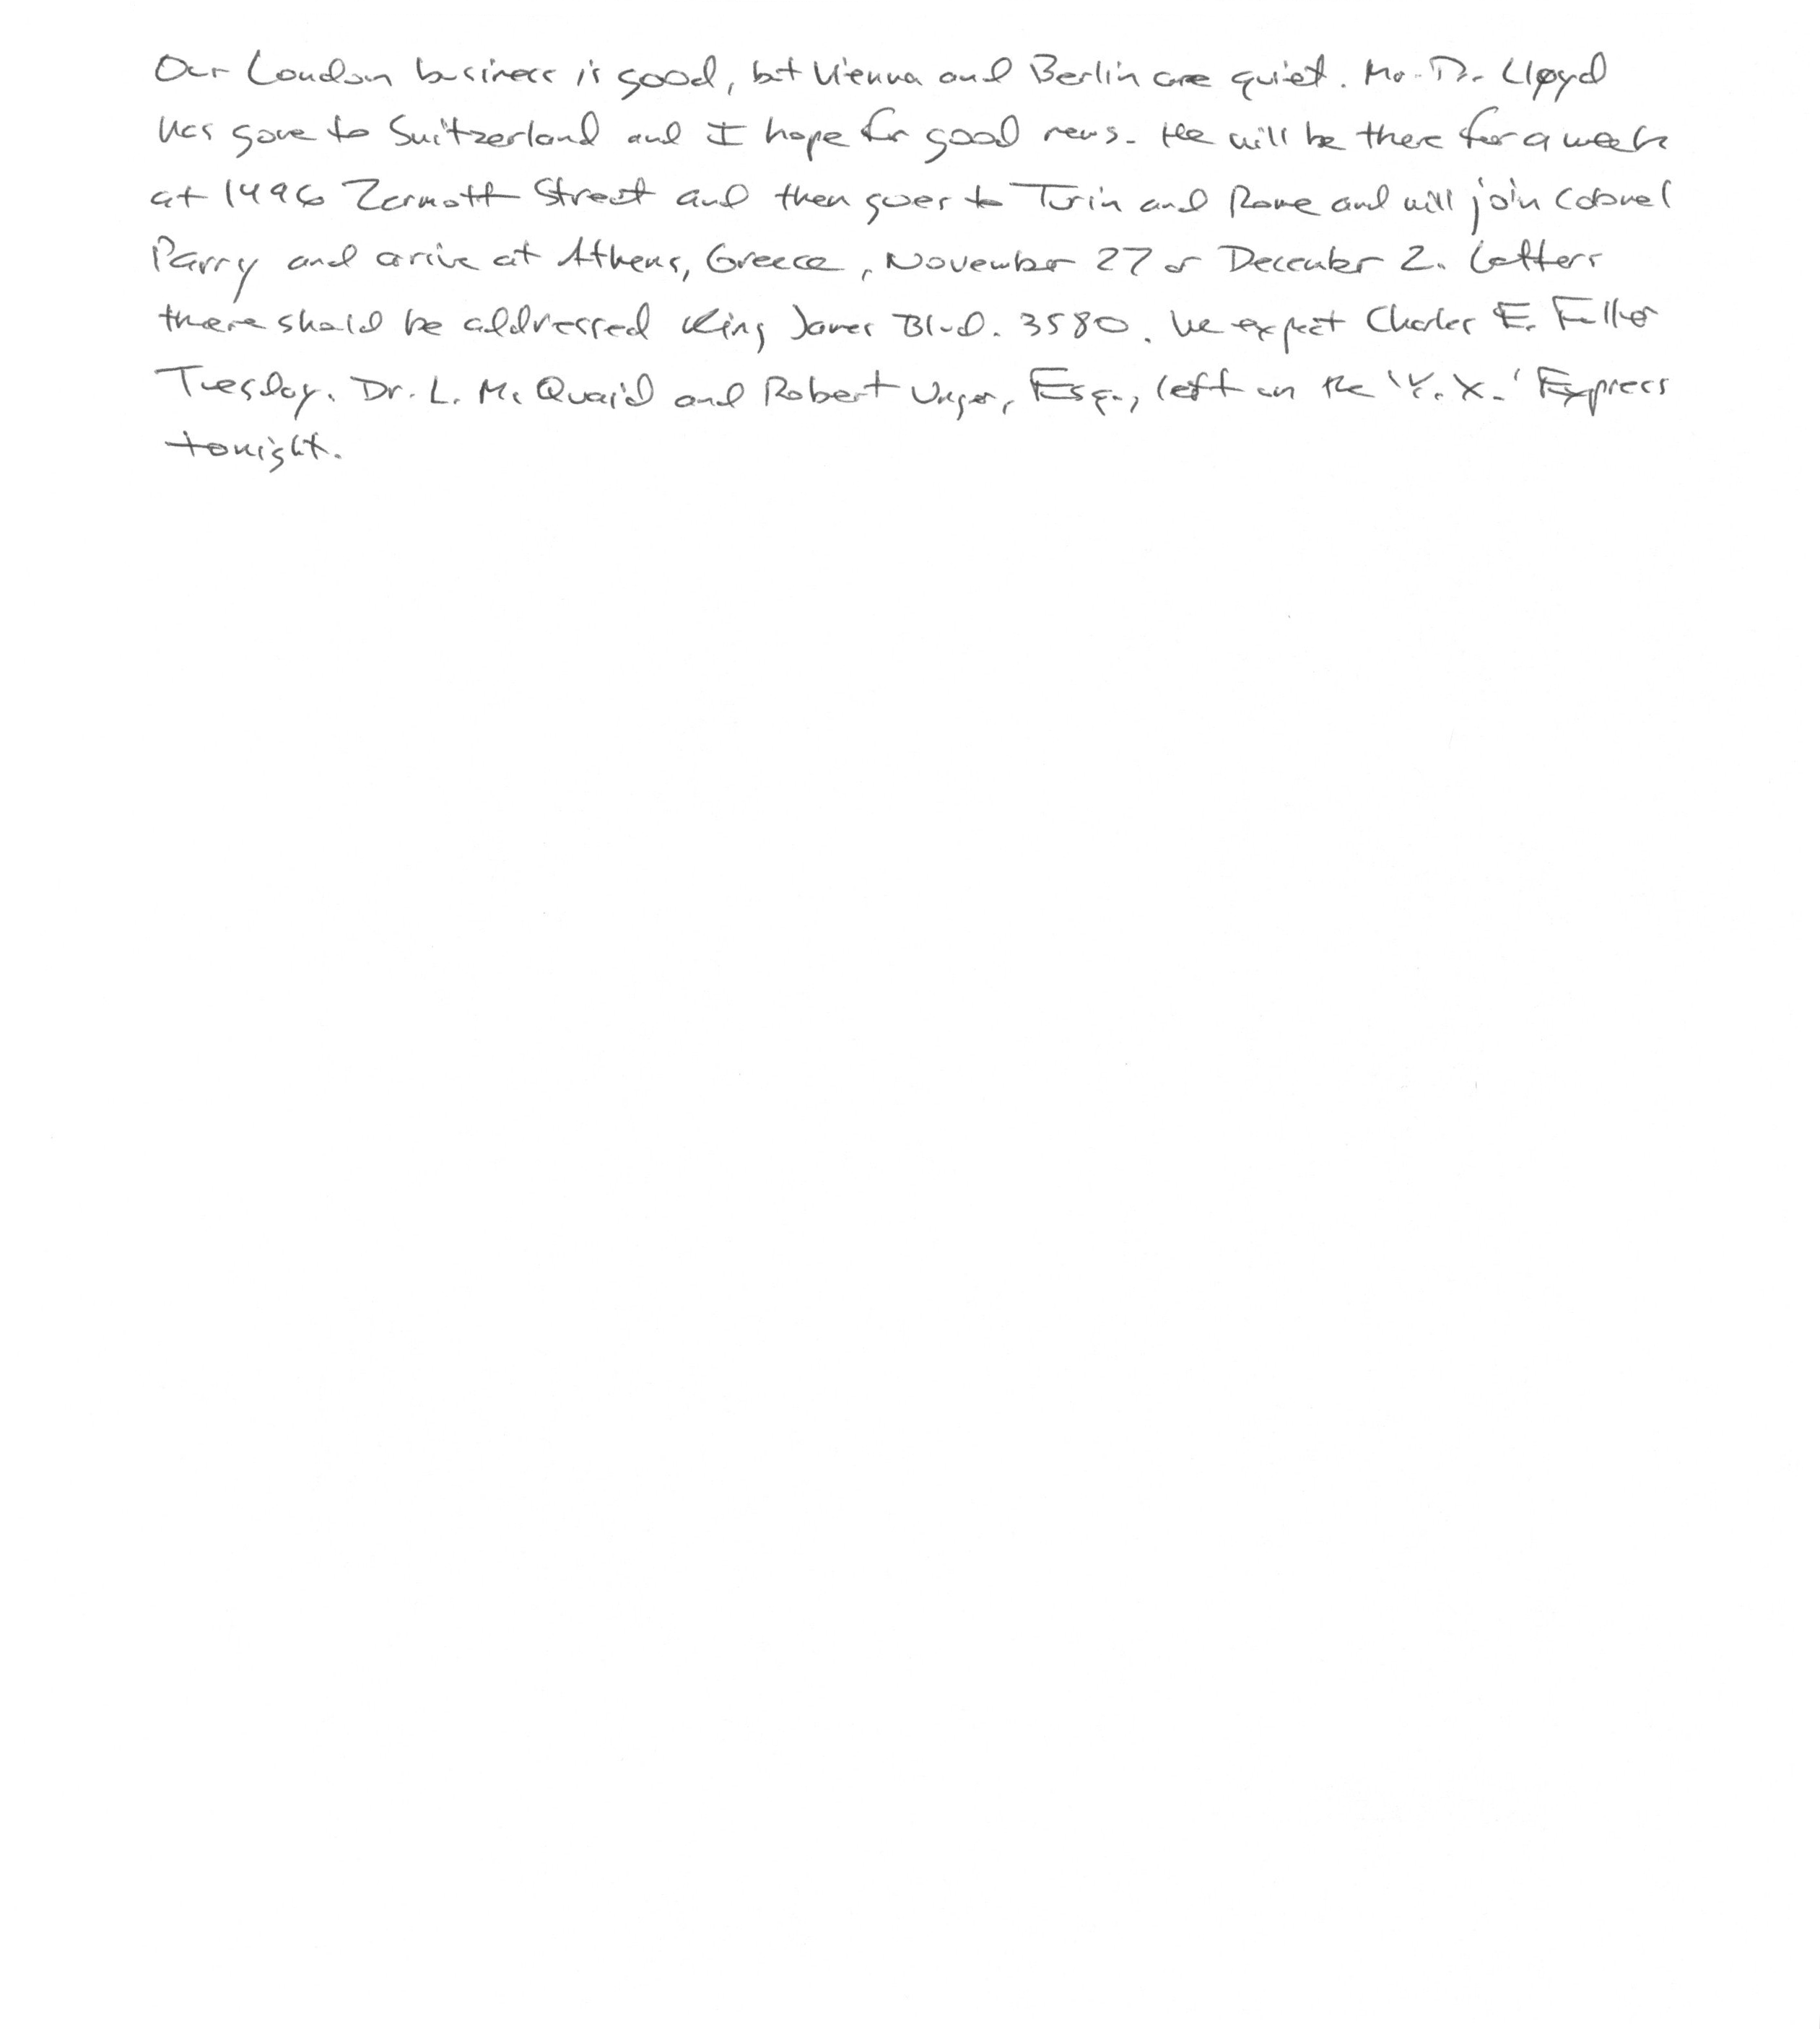 Our London business is good, but Vienna and Berlin are quiet. Mr. D. Lloyd
has gone to Switzerland and I hope for good news. He will be there for a week
at 1496 Zermott Street and then goes to Turin and Rome and will join Colonel
Parry and arrive at Athens, Greece, November 27 or December 2. Letters
there should be addressed King James Blvd. 3580. We expect Charles E. Fuller
Tuesday. Dr. L. Mc Quaid and Robert Unger, Esq., left on the 'Y.X.' Express
tonight.